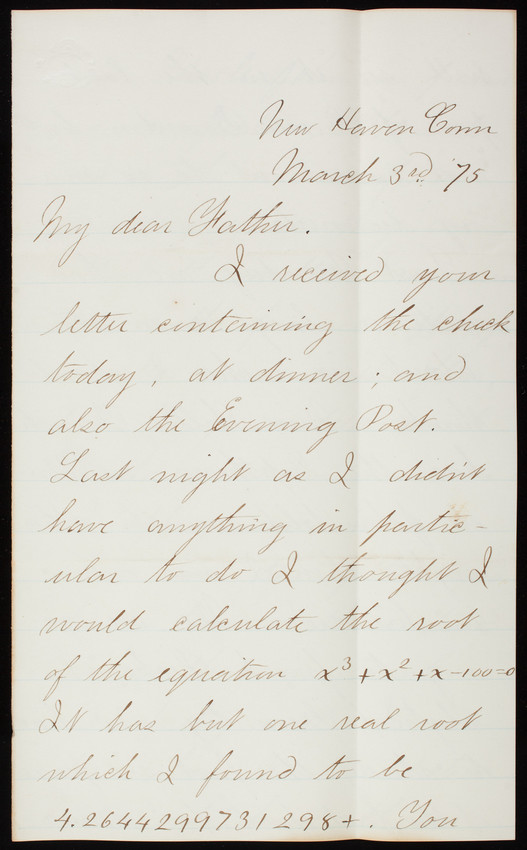 New Haven Conn
March 3rd. '75
My dear Father.
I received your
letter containing the check
today, at dinner; and
also the Evening Post.
Last night as I didn't
have anything in partic-
ular to do I thought I
would calculate the root
of the equation x³+x²+x-100=0
It has but one real root
which I found to be
4.2644299731298+. You